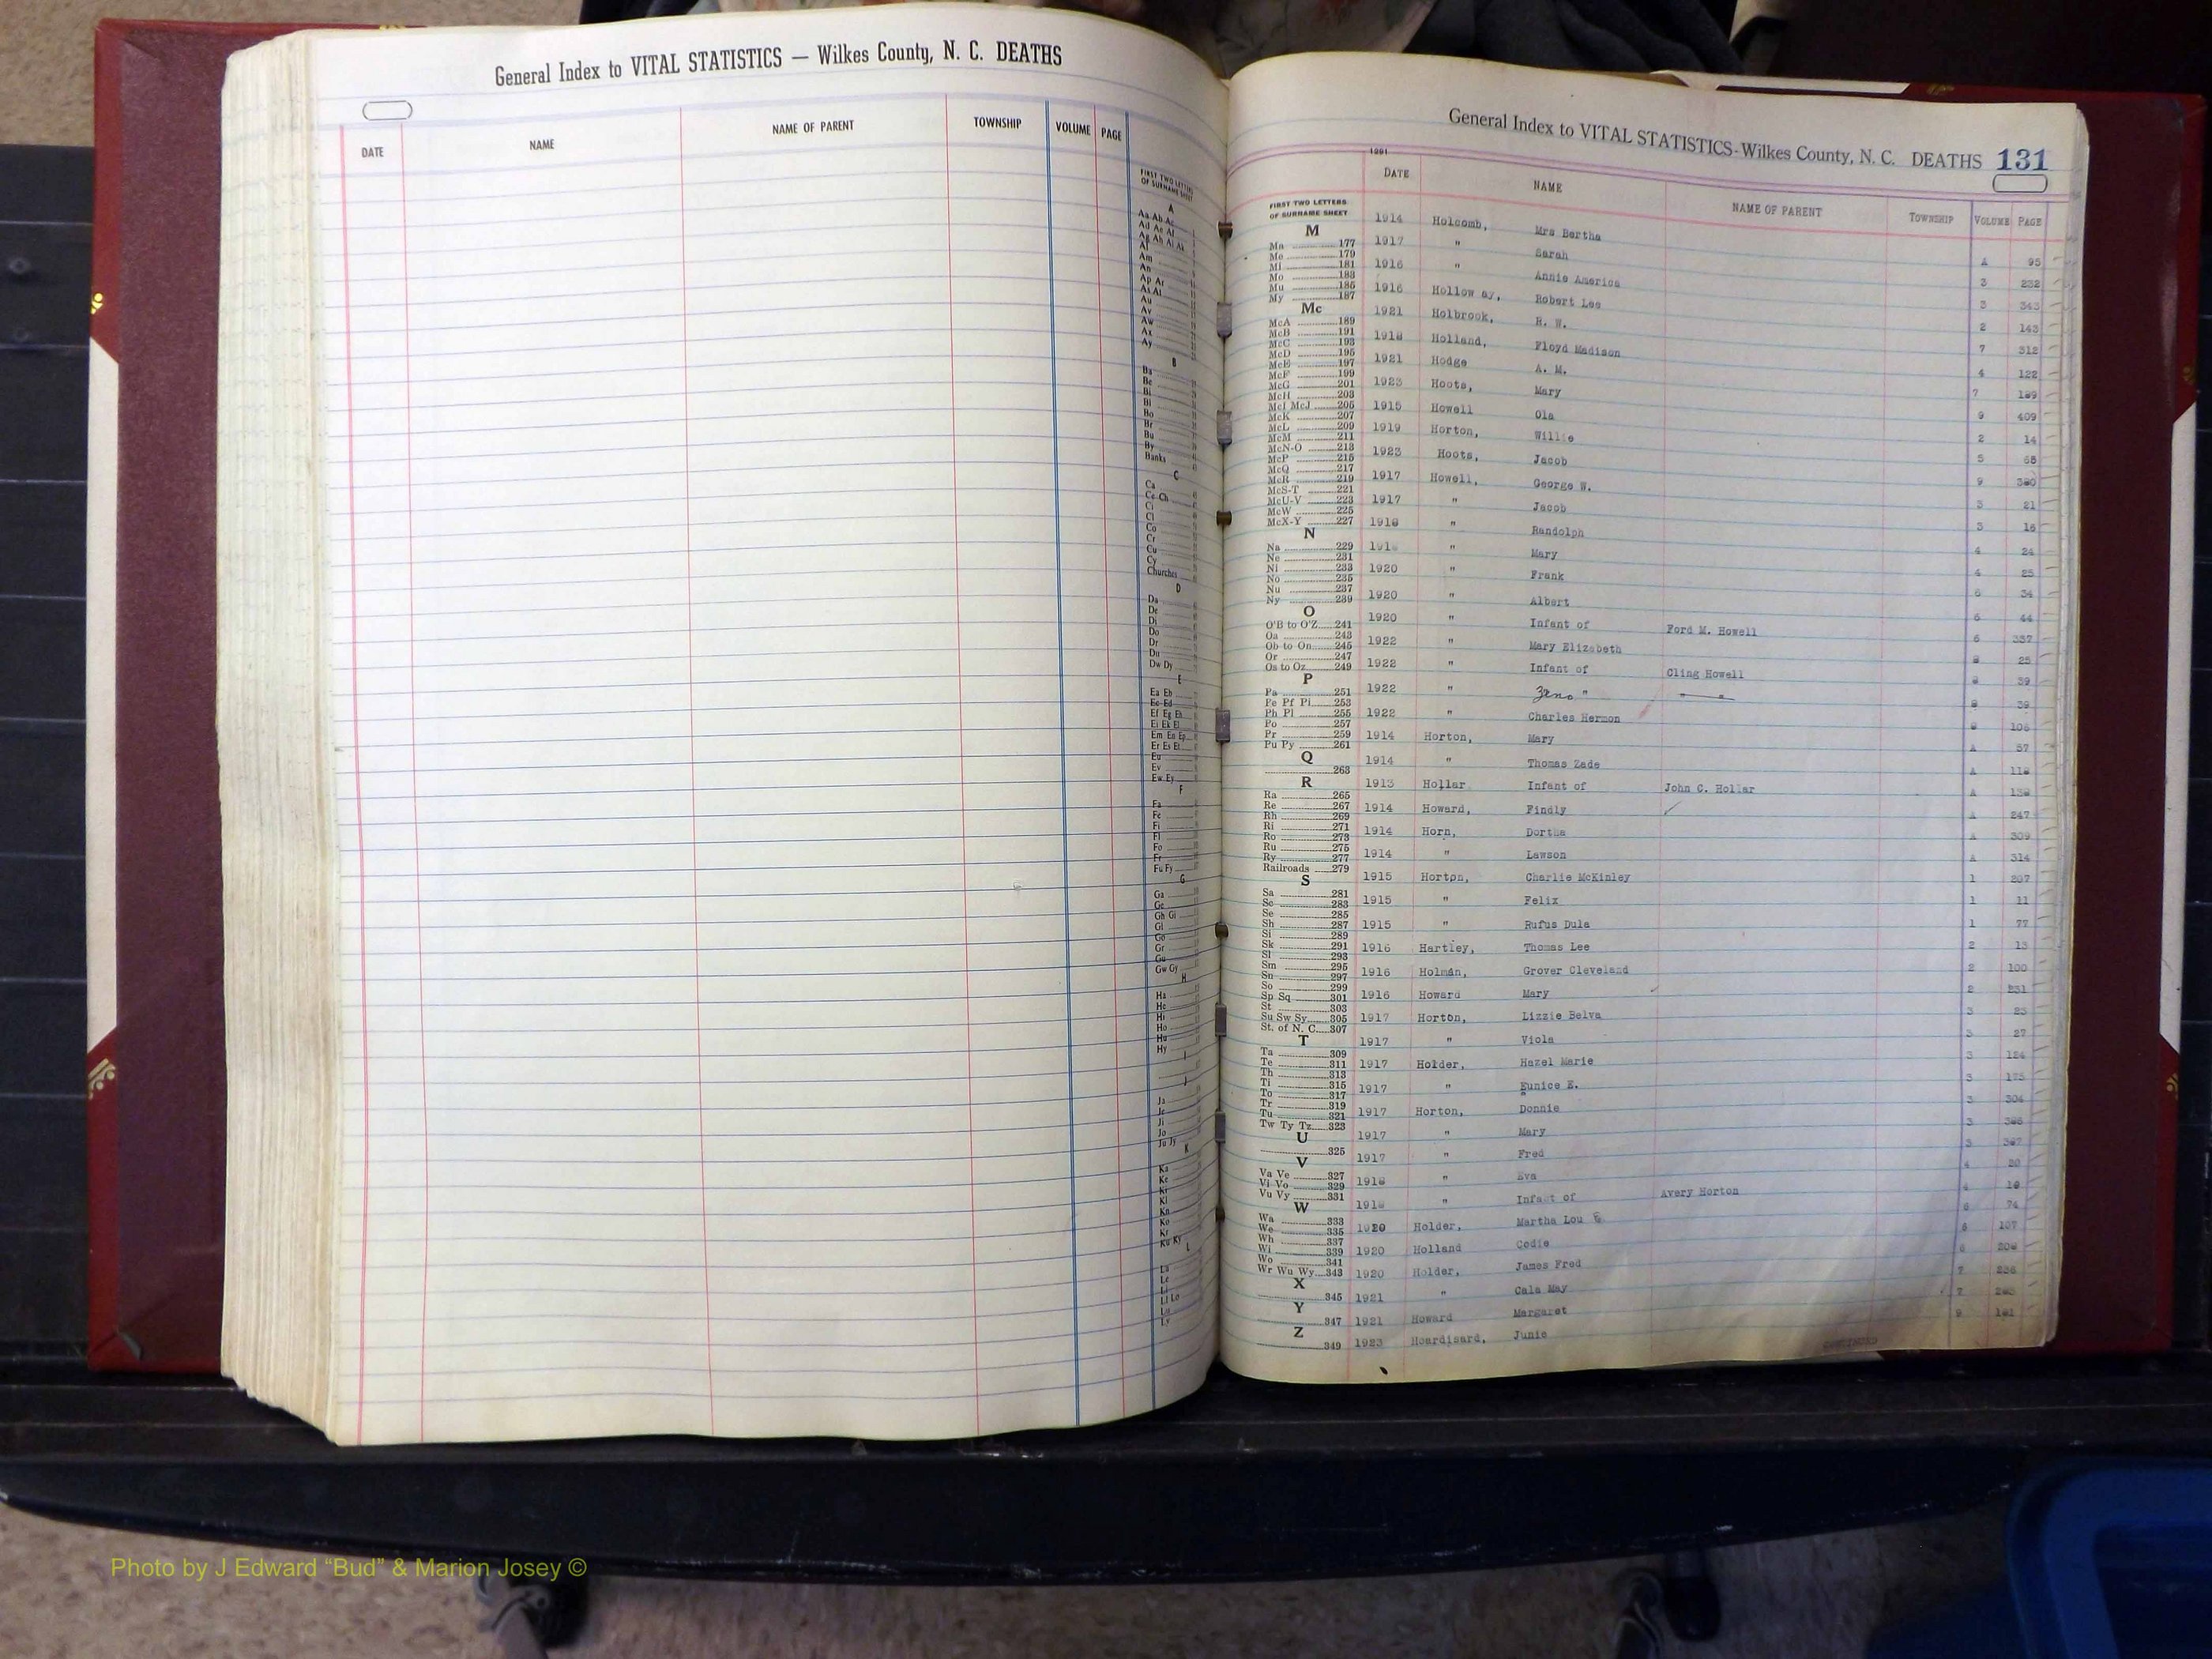 General Index to VITAL STATISTICS — Wilkes County, N. C. DEATHS
DATE NAME NAME OF PARENT TOWNSHIP VOLUME PAGE
FIRST TWO LETTERS
OF SURNAME SHEET
A
Aa Ab Ac
Ad Ae Af
Ag Ah Ai Ak
Al
Am
An
Ap Ar
As At
Au
Av
Aw
Ax
Ay
B
Ba
Be
Bi
Bl
Bo
Br
Bu
By
Banks
C
Ca
Ce Ch
Ci
Cl
Co
Cr
Cu
Cy
Churches
D
Da
De
Di
Do
Dr
Du
Dw Dy
E
Ea Eb
Ec Ed
Ef Eg Eh
Ei Ek El
Em En Ep
Er Es Et
Eu
Ev
Ew Ey
F
Fa
Fe
Fi
Fl
Fo
Fr
Fu Fy
G
Ga
Ge
Gh Gi
Gl
Go
Gr
Gu
Gw Gy
H
Ha
He
Hi
Ho
Hu
Hy
I
J
Ja
Je
Ji
Jo
Ju Jy
K
Ka
Ke
Ki
Kl
Kn
Ko
Kr
Ku Ky
L
La
Le
Li
Ll Lo
Lu
Ly
General Index to VITAL STATISTICS-Wilkes County, N. C. DEATHS 131
1291
DATE NAME NAME OF PARENT TOWNSHIP VOLUME PAGE
FIRST TWO LETTERS
OF SURNAME SHEET
M
Ma 177
Me 179
Mi 181
Mo 183
Mu 185
My 187
Mc
McA 189
McB 191
McC 193
McD 195
McE 197
McF 199
McG 201
McH 203
McI McJ 205
McK 207
McL 209
McM 211
McN-O 213
McP 215
McQ 217
McR 219
McS-T 221
McU-V 223
McW 225
McX-Y 227
N
Na 229
Ne 231
Ni 233
No 235
Nu 237
Ny 239
O
O'B to O'Z 241
Oa 243
Ob to On 245
Or 247
Os to Oz 249
P
Pa 251
Pe Pf Pi 253
Ph Pl 255
Po 257
Pr 259
Pu Py 261
Q
263
R
Ra 265
Re 267
Rh 269
Ri 271
Ro 273
Ru 275
Ry 277
Railroads 279
S
Sa 281
Sc 283
Se 285
Sh 287
Si 289
Sk 291
Sl 293
Sm 295
Sn 297
So 299
Sp Sq 301
St 303
Su Sw Sy 305
St. of N. C. 307
T
Ta 309
Te 311
Th 313
Ti 315
To 317
Tr 319
Tu 321
Tw Ty Tz 323
U
325
V
Va Ve 327
Vi Vo 329
Vu Vy 331
W
Wa 333
We 335
Wh 337
Wi 339
Wo 341
Wr Wu Wy 343
X
345
Y
347
Z
349
1914 Holcomb, Mrs Bertha A 95
1917 " Sarah 3 232
1916 " Annie America 3 343
1916 Hollow ay, Robert Lee 2 143
1921 Holbrook, R. W. 7 312
1918 Holland, Floyd Madison 4 122
1921 Hodge A. M. 7 189
1923 Hoots, Mary 9 409
1915 Howell Ola 2 14
1919 Horton, Willie 5 68
1923 Hoots, Jacob 9 380
1917 Howell, George W. 3 21
1917 " Jacob 3 16
1918 " Randolph 4 24
" Mary 4 25
1920 " Frank 6 34
1920 " Albert 6 44
1920 " Infant of Ford M. Howell 6 357
1922 " Mary Elizabeth 8 25
1922 " Infant of Cling Howell 8 39
1922 " Zeno " " " 8 39
1922 " Charles Hermon 8 108
1914 Horton, Mary A 57
1914 " Thomas Zade A 118
1913 Hollar Infant of John C. Hollar A 138
1914 Howard, Findly A 247
1914 Horn, Dortha A 309
1914 " Lawson A 314
1915 Horton, Charlie McKinley 1 207
1915 " Felix 1 11
1915 " Rufus Dula 1 77
1916 Hartley, Thomas Lee 2 13
1916 Holman, Grover Cleveland 2 100
1916 Howard Mary 2 231
1917 Horton, Lizzie Belva 3 23
1917 " Viola 3 27
1917 Holder, Hazel Marie 3 124
1917 " Eunice E. 3 175
1917 Horton, Donnie 3 304
1917 " Mary 3
1917 " Fred 3 367
1918 " Eva 4 20
1918 " Infant of Avery Horton 4
1920 Holder, Martha Lou 6 74
1920 Holland Codie 6 107
1920 Holder, James Fred 6 208
1921 " Cala May 7
1921 Howard Margaret 7
1923 Hoardisard, Junie 9 181
CONTINUED
Photo by J Edward “Bud” & Marion Josey ©